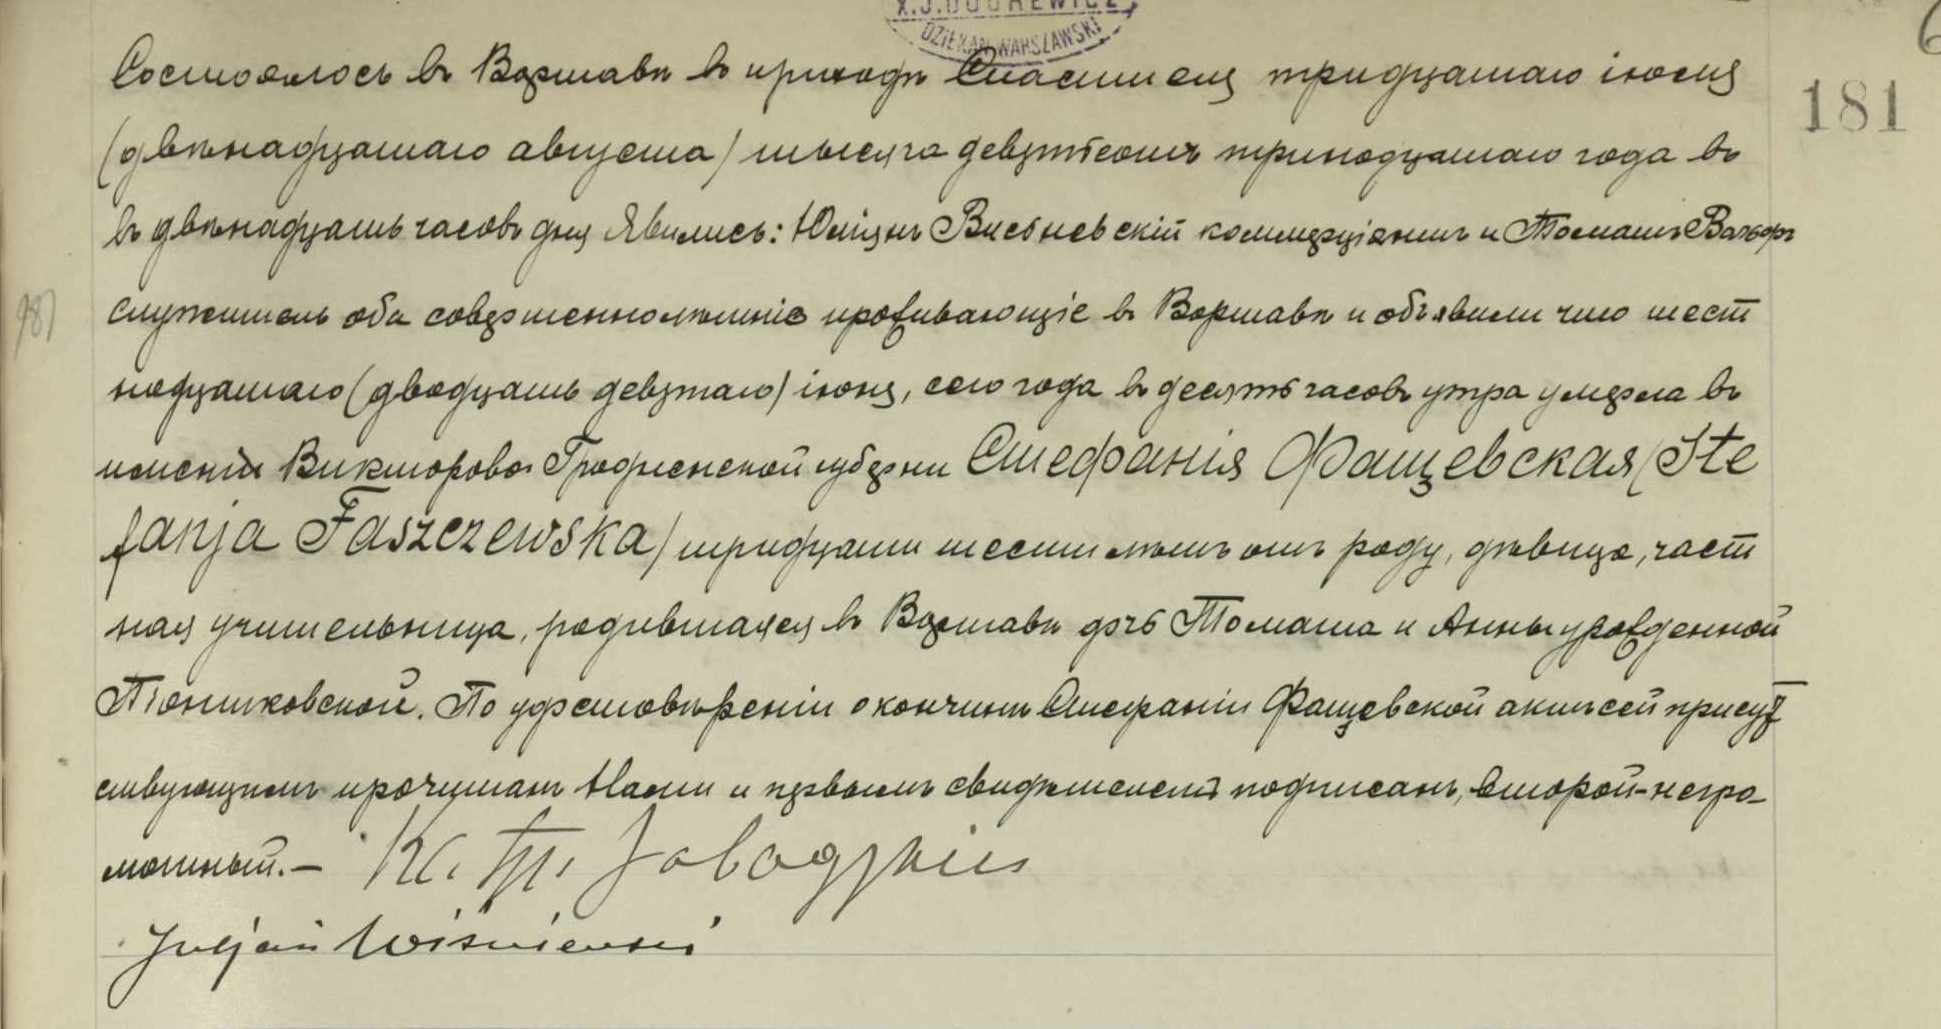 X.J.DUDREWICZ
DZIEKAN WARSZAWSKI
181
Состоялось въ Варшавѣ въ приходѣ Спасителя тридцатаго іюля
(двѣнадцатаго августа) тысяча девятьсотъ тринадцатаго года въ
въ двѣнадцать часовъ дня Явились: Юліянъ Висьневскій коммиссіянтъ и Томашъ
служитель оба совершеннолѣтніе проживающіе въ Варшавѣ и объявили что шест
надцатаго (двадцать девятаго) іюня, сего года въ десять часовъ утра умерла въ
имѣніи Викторово Гродненской губерніи Стефанія Фащевская (Ste
fanja Faszczewska) тридцати шести лѣтъ отъ роду, дѣвица, част
ная учительница, родившаяся въ Варшавѣ дочь Томаша и Анны урожденной
По удостовѣреніи о кончинѣ Стефаніи Фащевской актъ сей присут
ствующимъ прочитанъ Нами и первымъ свидѣтелемъ подписанъ, второй-негра-
мотный.–
Juljan Wiśniewski